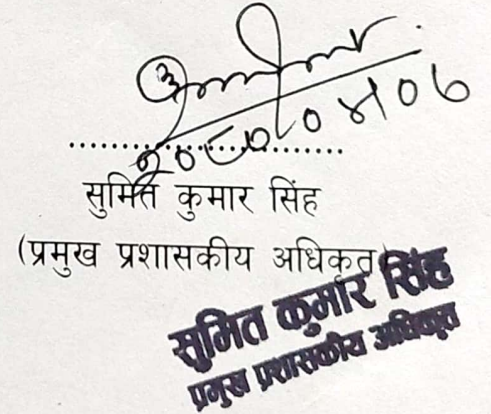 सुमित कुमार सिंह
(प्रमुख प्रशासकीय अधिकृत)
सुमित कुमार सिंह
प्रमुख प्रशासकीय अधिकृत